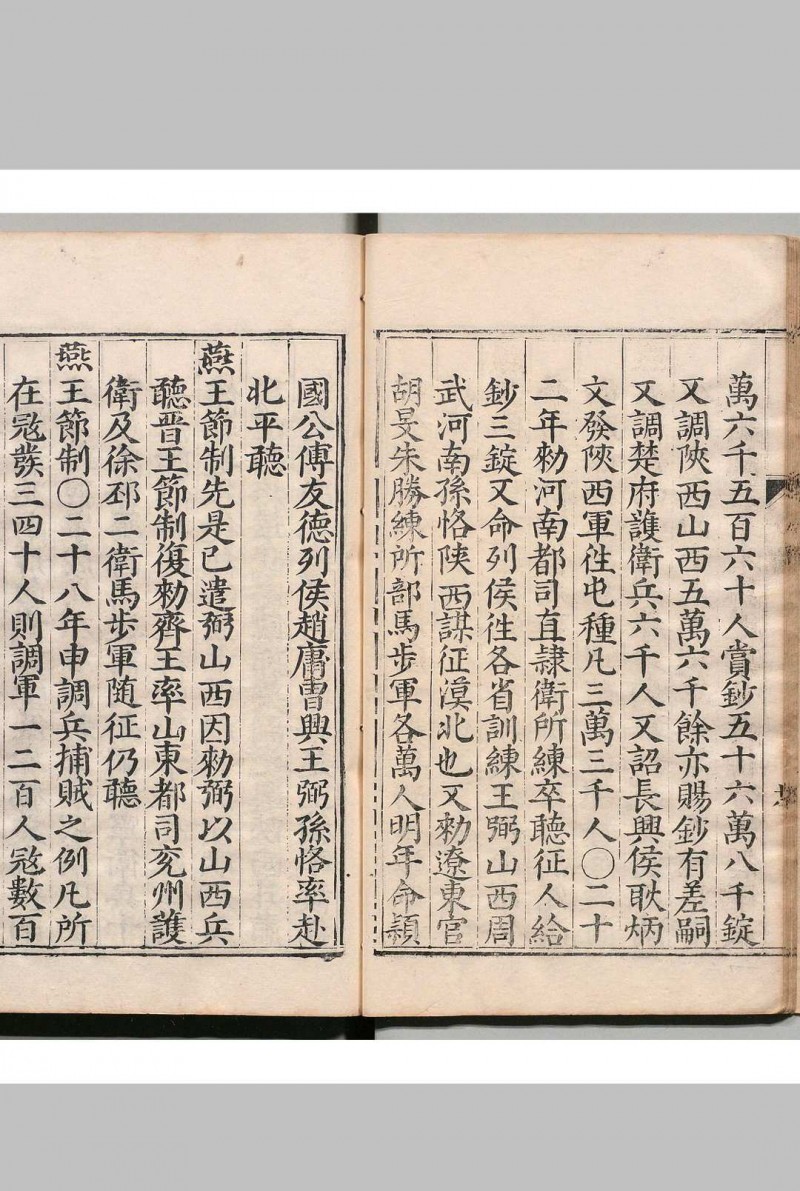 萬六千五百六十人賞鈔五十六萬八千錠
又調陝西山西五萬六千餘亦賜鈔有差嗣
又調楚府護衛兵六千人又詔長興侯耿炳
文發陝西軍徃屯種凡三萬三千人〇二十
二年勑河南都司直隷衛所練卒聽征人給
鈔三錠又命列侯徃各省訓練王弼山西周
武河南孫恪陝西謀征漠北也又勑遼東官
胡旻朱勝練所部馬步軍各萬人明年命潁
國公傅友德列侯趙庸曹興王弼孫恪率赴
北平聽
燕王節制先是已遣弼山西因勑弼以山西兵
聽晉王節制復勑齊王率山東都司兖州護
衛及徐邳二衛馬步軍随征仍聽
燕王節制〇二十八年申調兵捕賊之例凡所
在冦發三四十人則調軍一二百人冦數百